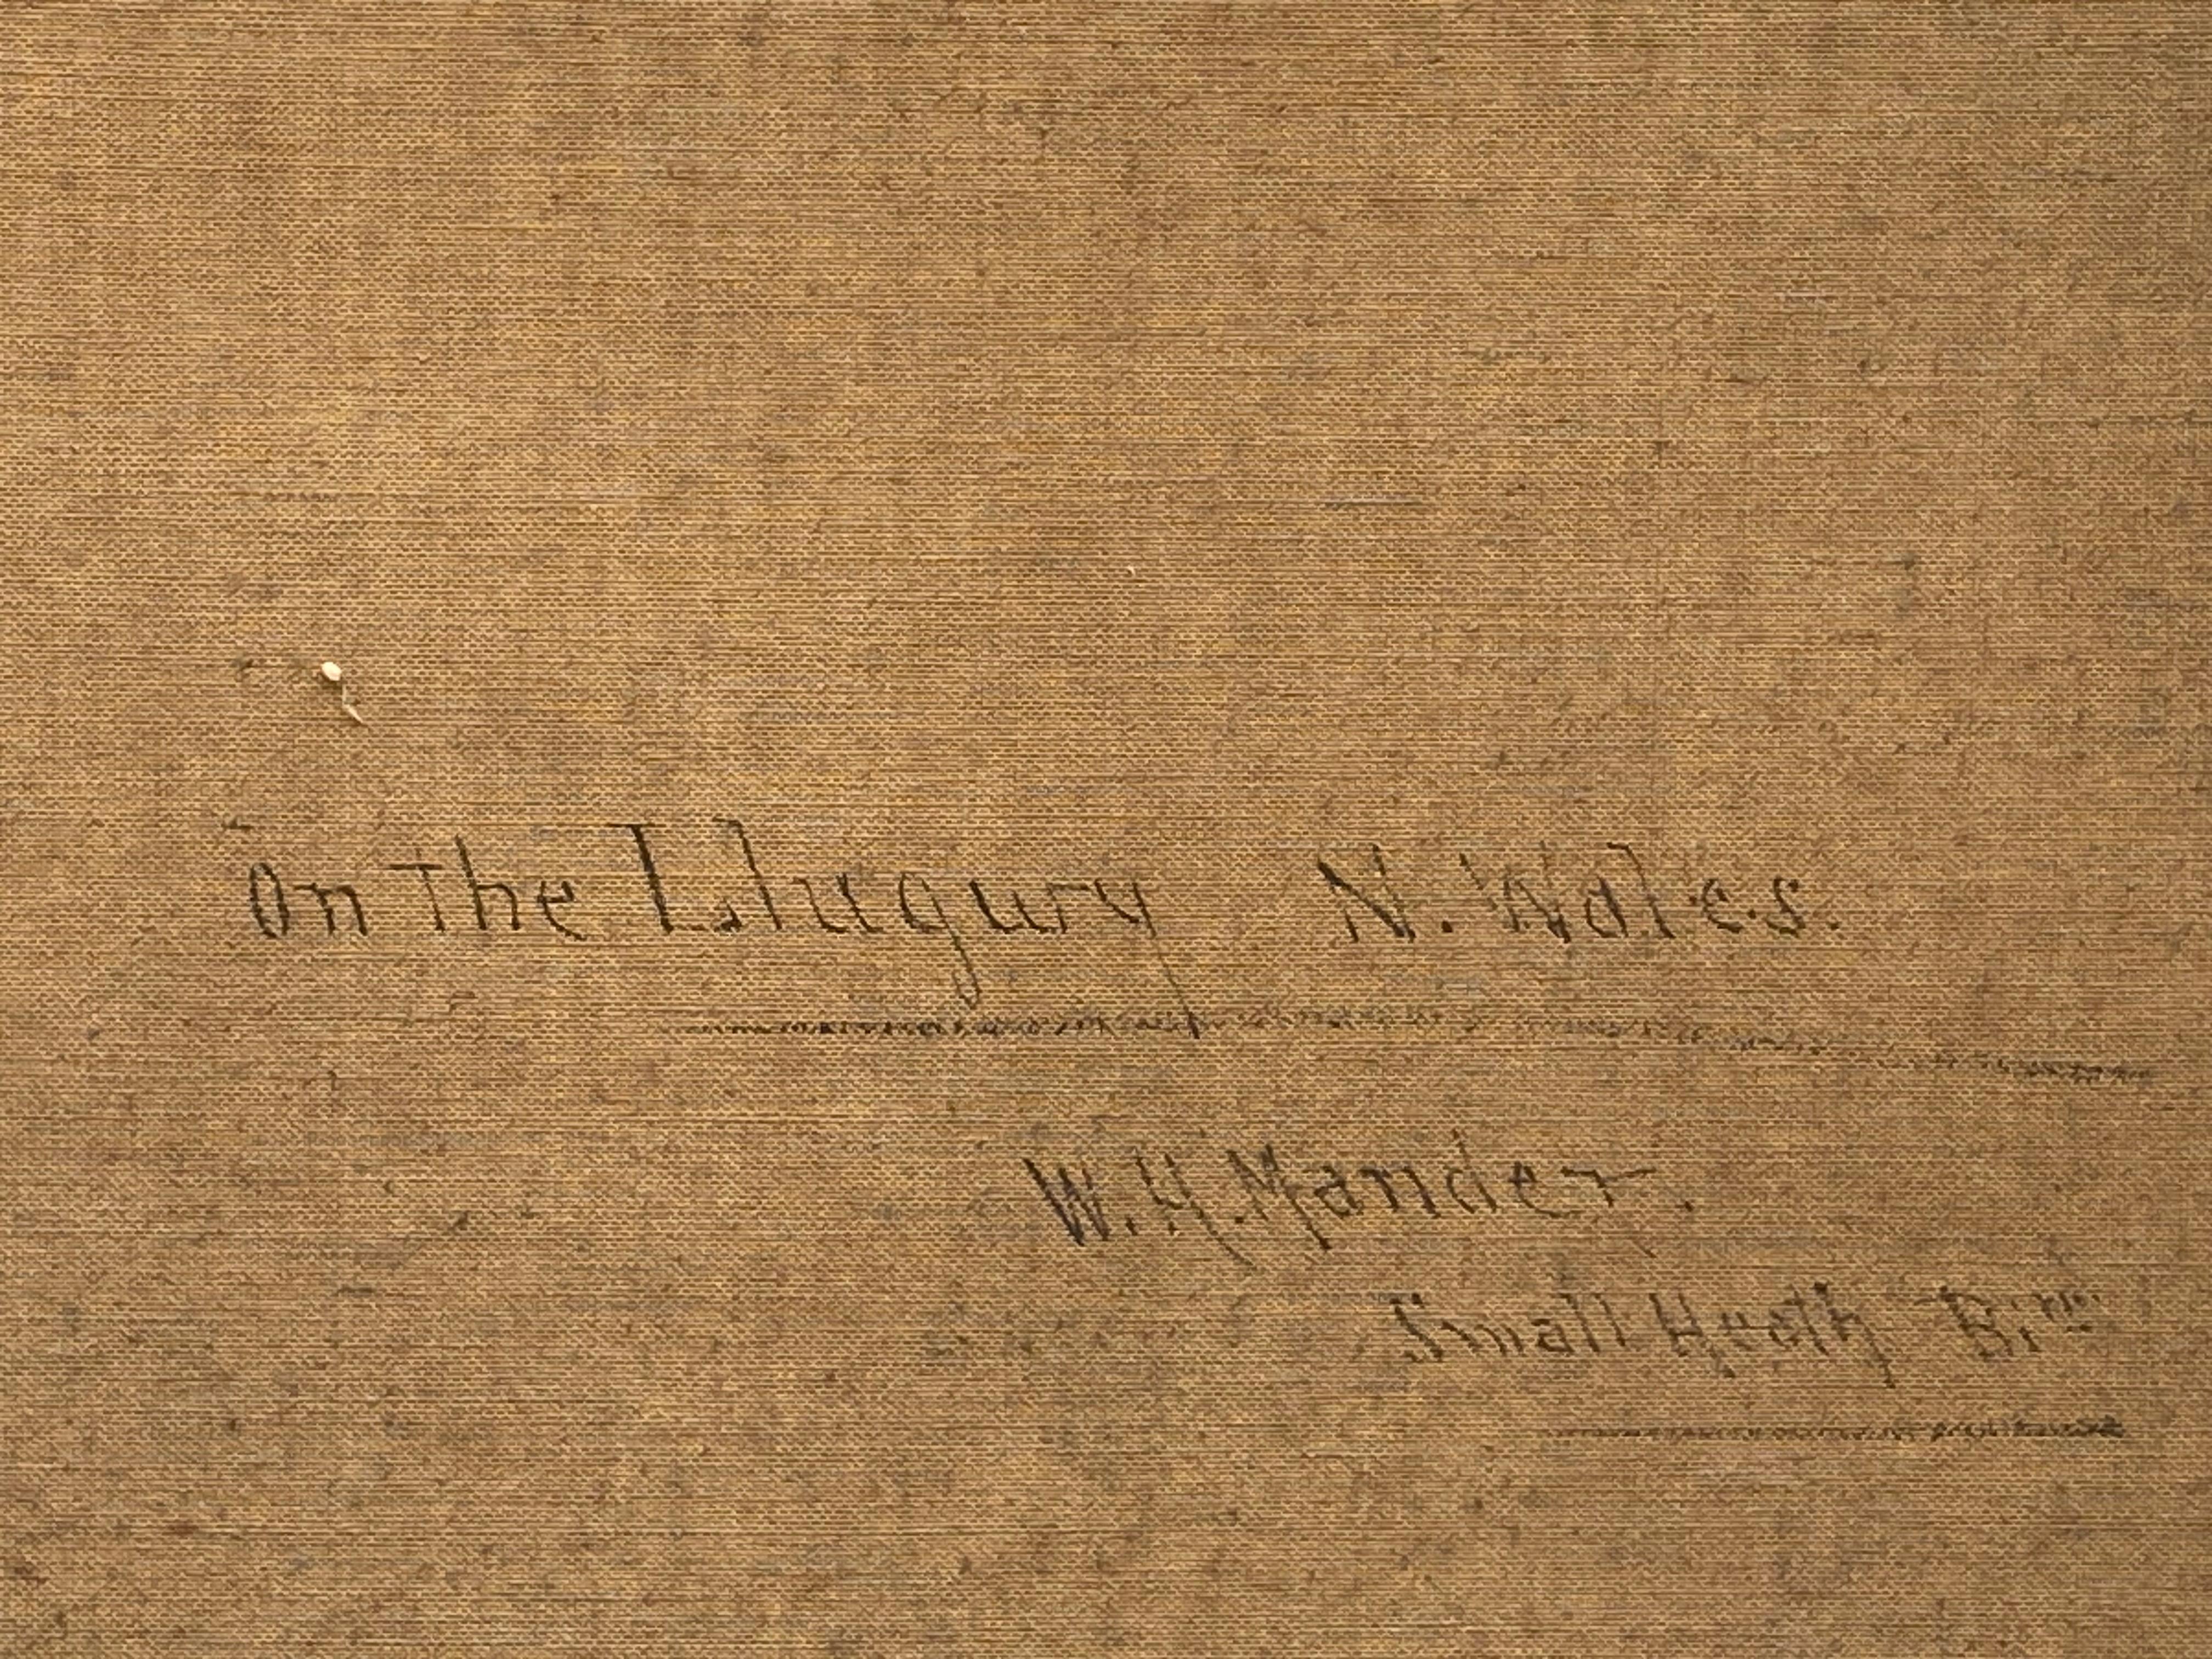 On The Llugury N. Wales.
W. H. Mander.
Small Heath Birm